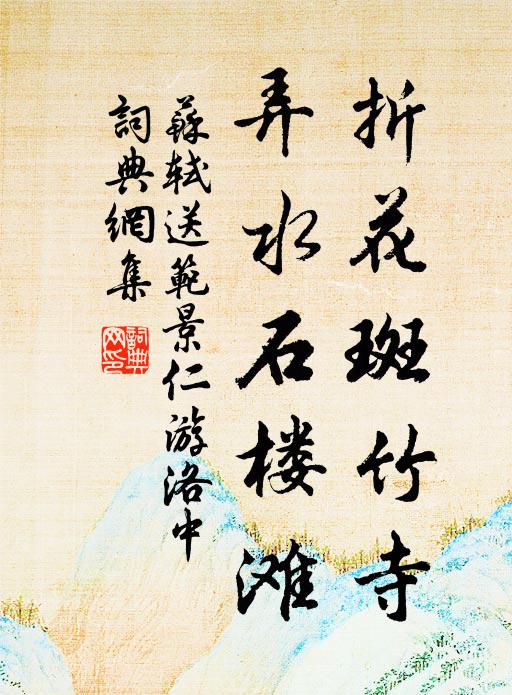 折花斑竹寺
弄水石楼滩
蘇軾送範景仁游洛中
詞典網集
詞典網印